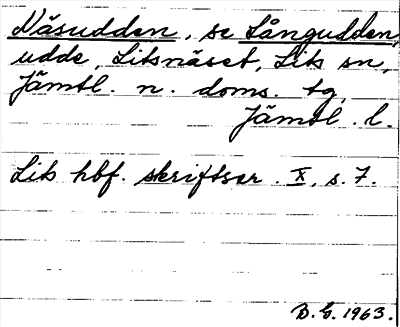 Näsudden, se Långudden,
udde, Litsnäset, Lits sn,
Jämtl. n. doms. tg,
Jämtl. l.
Lits hbf. skriftser. X, s. 7.
B.G. 1963.